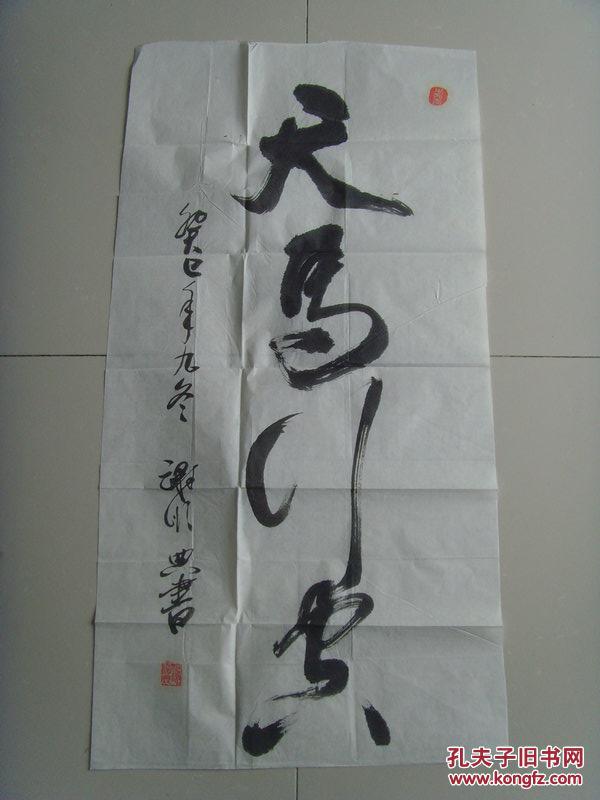 天馬行空
癸巳年九冬 谢顺典書
孔夫子旧书网
www.kongfz.com